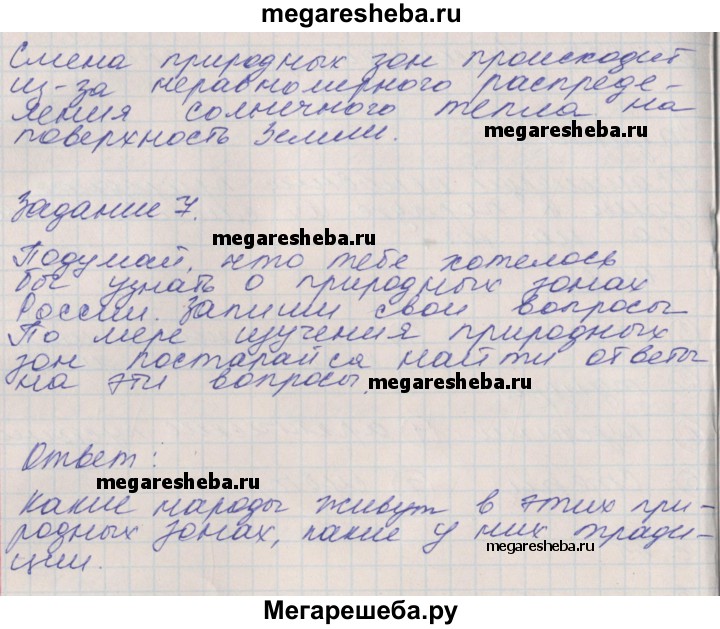 megaresheba.ru
Смена природных зон происходит
из-за неравномерного распреде-
ления солнечного тепла на
поверхность Земли.
megaresheba.ru
Задание 7.
megaresheba.ru
Подумай, что тебе хотелось
бы узнать о природных зонах
России. Запиши свои вопросы
По мере изучения природных
зон постарайся найти ответы
на эти вопросы.
megaresheba.ru
Ответ:
megaresheba.ru
Какие народы живут в этих при-
родных зонах, какие у них тради-
ции.
megaresheba.ru
Мегарешеба.ру